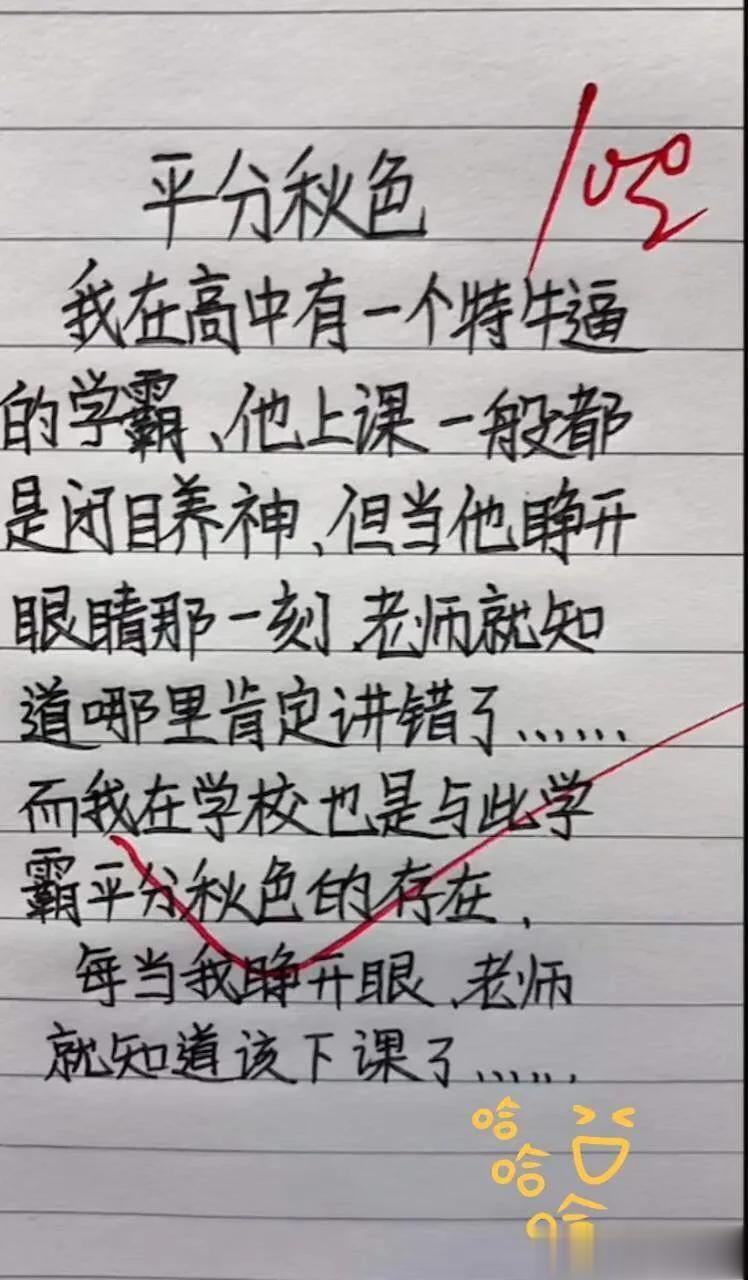 平分秋色
我在高中有一个特牛逼
的学霸、他上课一般都
是闭目养神、但当他睁开
眼睛那一刻、老师就知
道哪里肯定讲错了……
而我在学校也是与此学
霸平分秋色的存在、
每当我睁开眼、老师
就知道该下课了……
哈
哈
哈